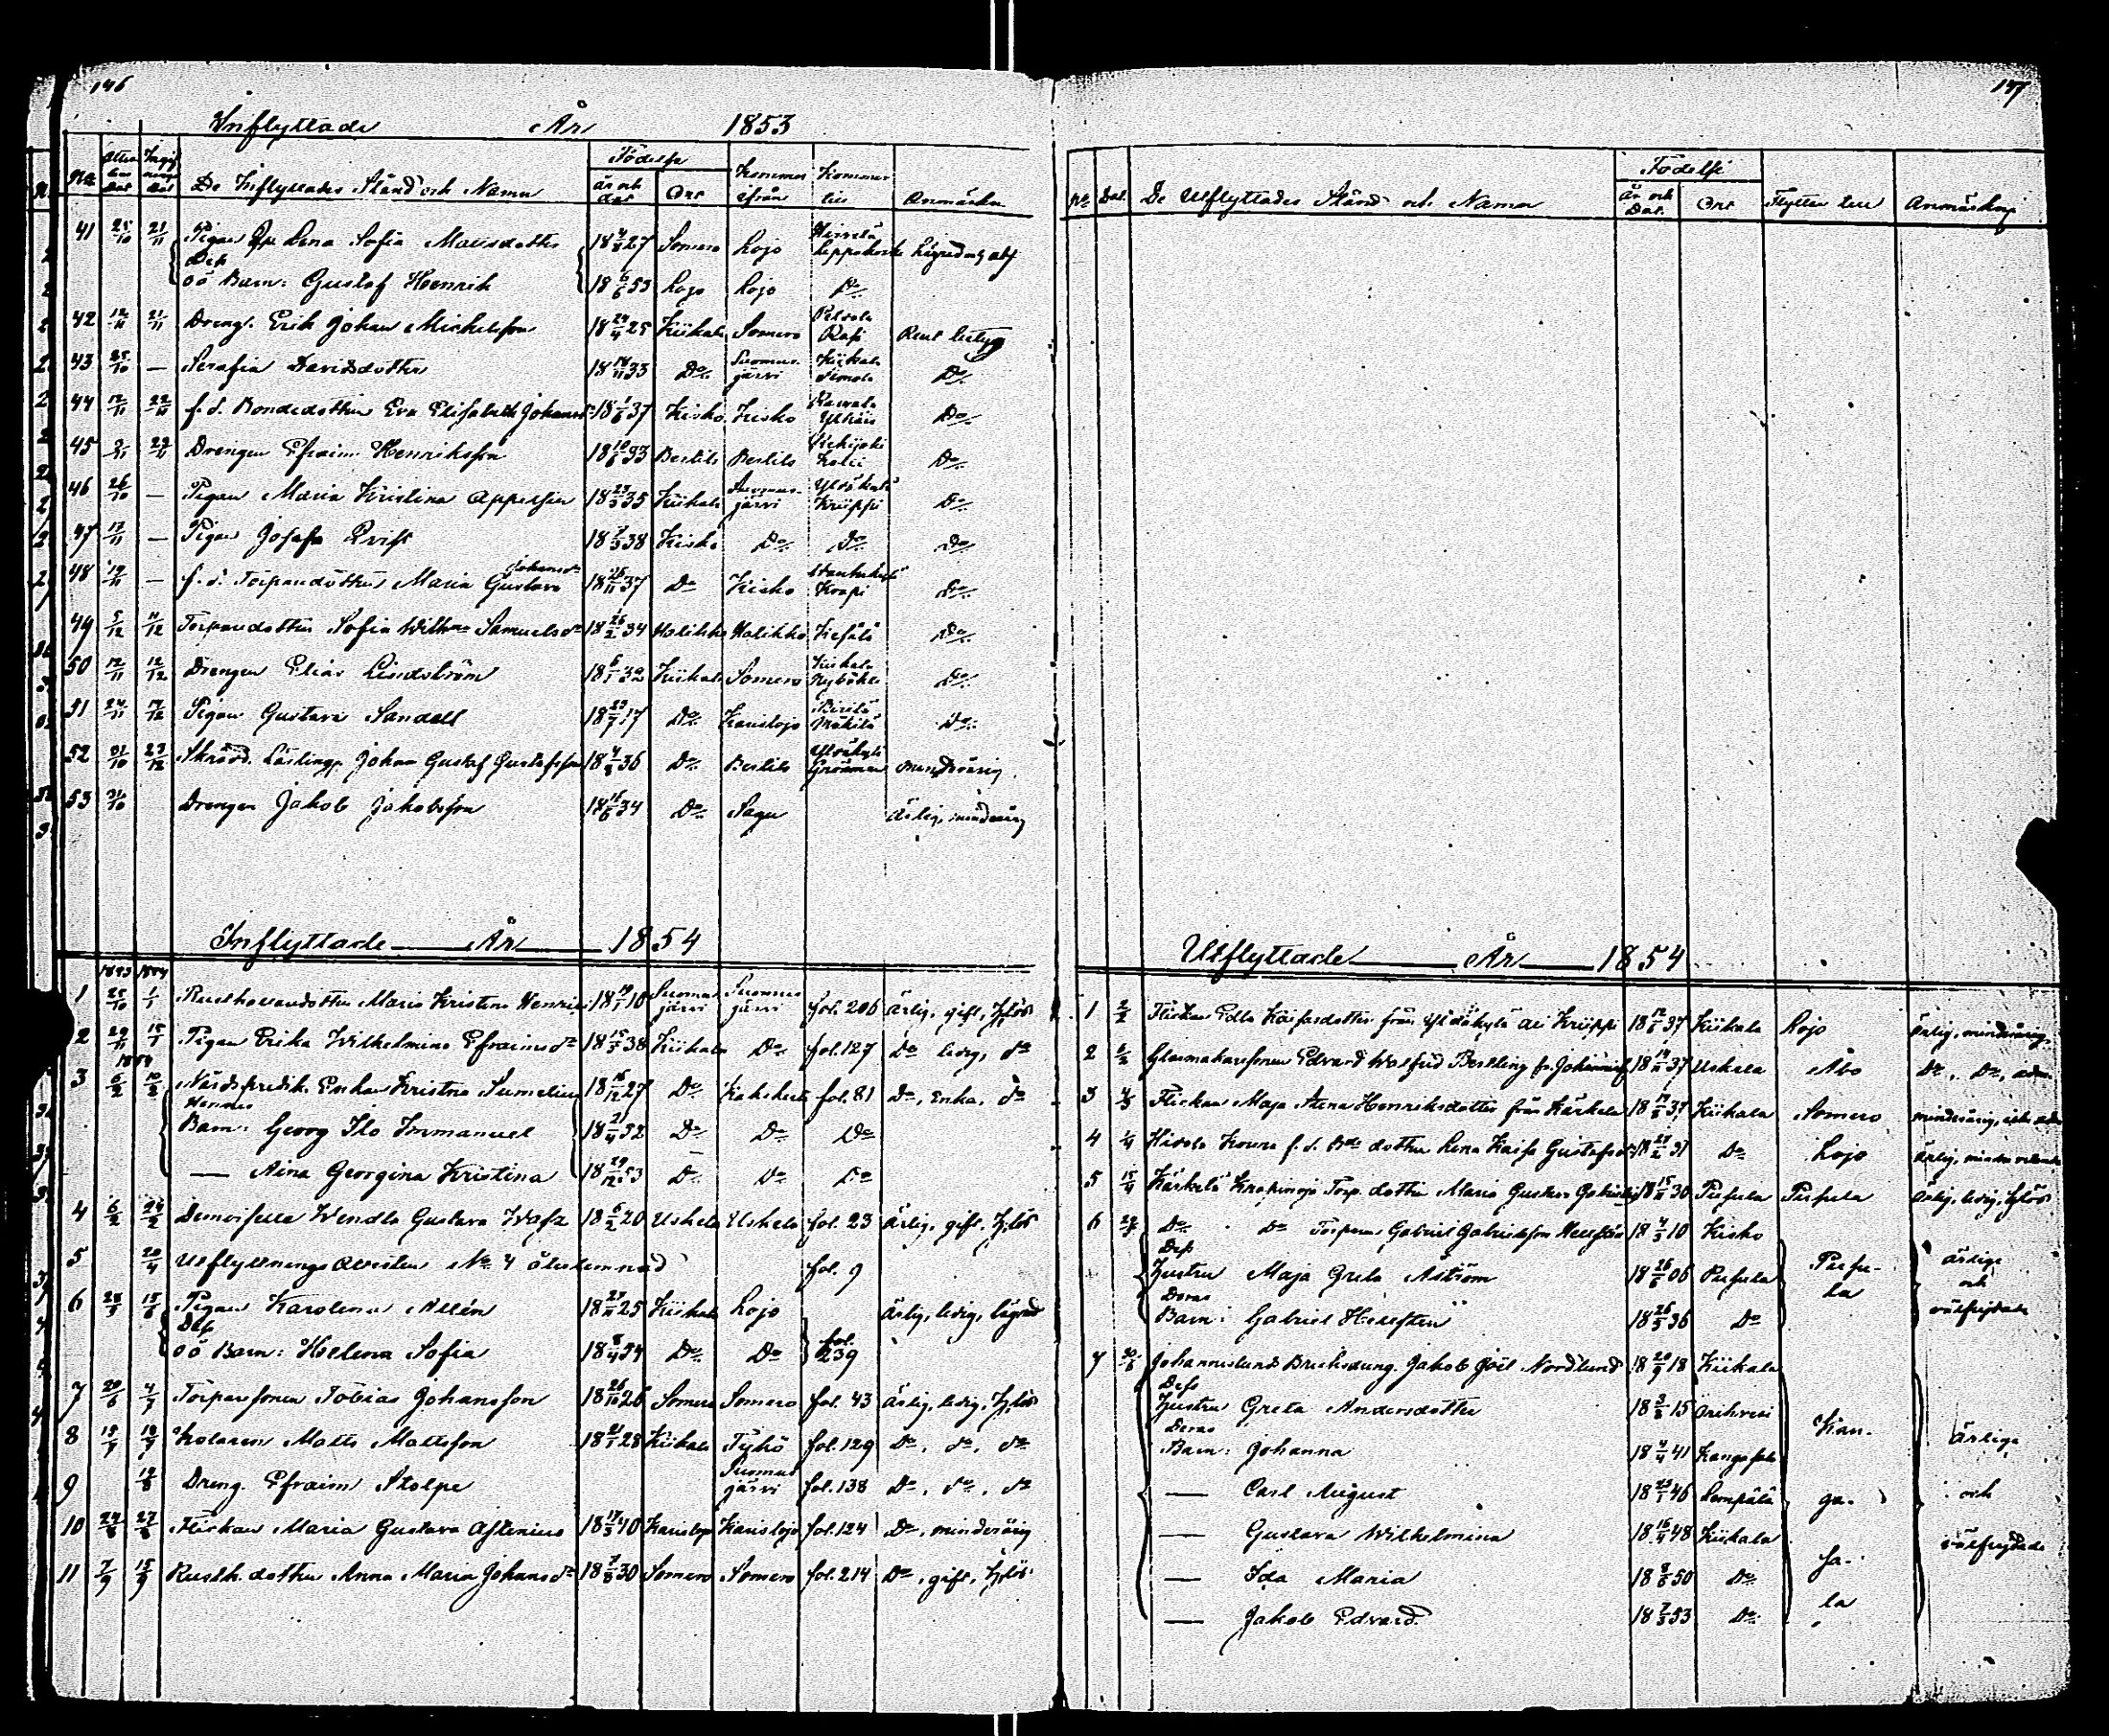 146
Inflyttade År 1853
No Attestens Dat Ingifnings Dat De Inflyttades Stånd och Namn Födelse år och dat Ort Kommer ifrån Kommer till Anmärkn
41 25/10 21/11 Pigan Lena Sofia Mattsdotter 18 4/3 27 Somero Lojo
Des
oö Barn: Gustaf Henrik 18 6/6 53 Lojo Lojo Do
42 12/11 21/11 Dreng. Erik Johan Michelsson 18 24/4 25 Kiikala Somero Rent betyg
43 25/10 — Serafia Davidsdotter 18 18/11 33 Do Suomusjärvi Kiikala Simola Do
44 12/11 22/11 f.d. Bondedotter Eva Elisabeth Johansd 18 1/6 37 Kisko Kisko Do
45 2/11 29/11 Drengen Efraim Henriksson 18 10/6 33 Bertils Bertils Do
46 26/10 — Pigan Maria Kristina Appelsin 18 23/3 35 Kiikala Suomusjärvi Yltäkylä Kriippi Do
47 17/11 — Pigan Josefa Qvist 18 7/3 38 Kisko Do Do Do
48 19/11 — f.d. Torpardotter Maria Gustava Johansd 18 16/11 37 Do Kisko Do
49 5/12 11/12 Torpardotter Sofia Wilhna Samuelsdr 18 26/2 34 Halikko Halikko Do
50 12/11 12/12 Drengen Elias Lindström 18 6/1 32 Kiikala Somero Kiikala Do
51 24/11 17/12 Pigan Gustava Sandell 18 23/7 17 Do Karislojo Do
52 31/10 23/12 Skrädd. Lärling Johan Gustaf Gustafsson 18 4/8 36 Do Bertils minderårig
53 31/10 Drengen Jakob Jakobsson 18 15/6 34 Do Sagu ärlig, minderårig
Inflyttade — År — 1854
1853 1854
1 25/10 1/1 Rusthollaredotter Maria Kristina Henriksd 18 19/1 10 Suomusjärvi Suomusjärvi fol. 206 ärlig, gift, hjlös
2 29/11 15/1 Pigan Erika Wilhelmina Efraimsdr 18 15/5 38 Kiikala Do fol. 127 Do ledig, do
1854
3 6/2 10/2 Nådårspredik. Enkan Kristina Sumelius 18 16/12 27 Do fol. 81 Do, Enka, do
Hennes
Barn: Georg Ilo Immanuel 18 7/4 52 Do Do Do
— Aina Georgina Kristina 18 29/12 53 Do Do Do
4 6/2 24/2 Demoiselle Wendla Gustava 18 6/2 20 Uskela Uskela fol. 23 ärlig, gift, hjlös
5 20/4 Utflyttnings Attesten No 4 återlemnad fol. 9
6 28/5 15/6 Pigan Karolina Allén 18 27/11 25 Kiikala Lojo ärlig, ledig, lägrad
Dess
oö Barn: Helena Sofia 18 8/4 54 Do Do fol. 239
7 20/6 4/7 Torparsonen Tobias Johansson 18 26/10 26 Somero Somero fol. 43 ärlig, ledig, hjlös
8 15/7 19/7 Kolaren Matts Mattsson 18 21/1 28 Kiikala Tykö fol. 129 Do, do, do
9 19/8 Dreng. Efraim Stolpe Suomusjärvi fol. 138 Do, do, do
10 24/8 27/8 Flickan Maria Gustava Aftenius 18 17/3 40 Karislojo Karislojo fol. 124 Do, minderårig
11 7/9 15/9 Rusth. dotter Anna Maria Johansdr 18 7/8 30 Somero Somero fol. 214 Do, gift, hjlös
147
No Dat. De Utflyttades Stånd och Namn Födelse År och Dat. Ort Flyttar till Anmärkn
Utflyttade — År — 1854
1 2/2 Flickan Edla Kaisasdotter från Yltäkylä Ali Kriippi 18 12/6 37 Kiikala Lojo ärlig, minderårig
2 6/2 Glasmakaresonen Edvard Walfrid Bertling fr. Johannisl. 18 19/11 37 Uskela Åbo Do, Do, adm.
3 4/3 Flickan Maja Stina Henriksdotter från Kärkelä 18 19/8 37 Kiikala Somero minderårig
4 1/4 Hirvola f.d. Bde dotter Lena Kaisa Gustafsdr 18 29/2 31 Do Lojo ärlig
5 15/4 Kärkelä Torp. dotter Maria Gustava 18 15/11 30 Pusula Pusula ärlig, ledig, hjlös
6 Do Do Torparen Gabriel Gabrielsson Hellstén 18 4/3 10 Kisko
Dess
hustru Maja Greta Åström 18 26/6 06 Pusula Pusula ärliga och välfrejdade
Deras
Barn: Gabriel Hellstén 18 26/5 36 Do
7 30/6 Johannislunds Bruksdreng. Jakob Joel Nordlund 18 20/9 18 Kiikala
Dess
hustru Greta Andersdotter 18 3/8 15 Orihvesi
Deras
Barn: Johanna 18 4/4 41 Kangasala Kan-
— Carl August 18 23/1 46 Lempälä ga- ärliga och
— Gustava Wilhelmina 18 16/4 48 Kiikala välfrejdade
— Ida Maria 18 8/6 50 Do sa-
— Jakob Edvard 18 7/3 53 Do la